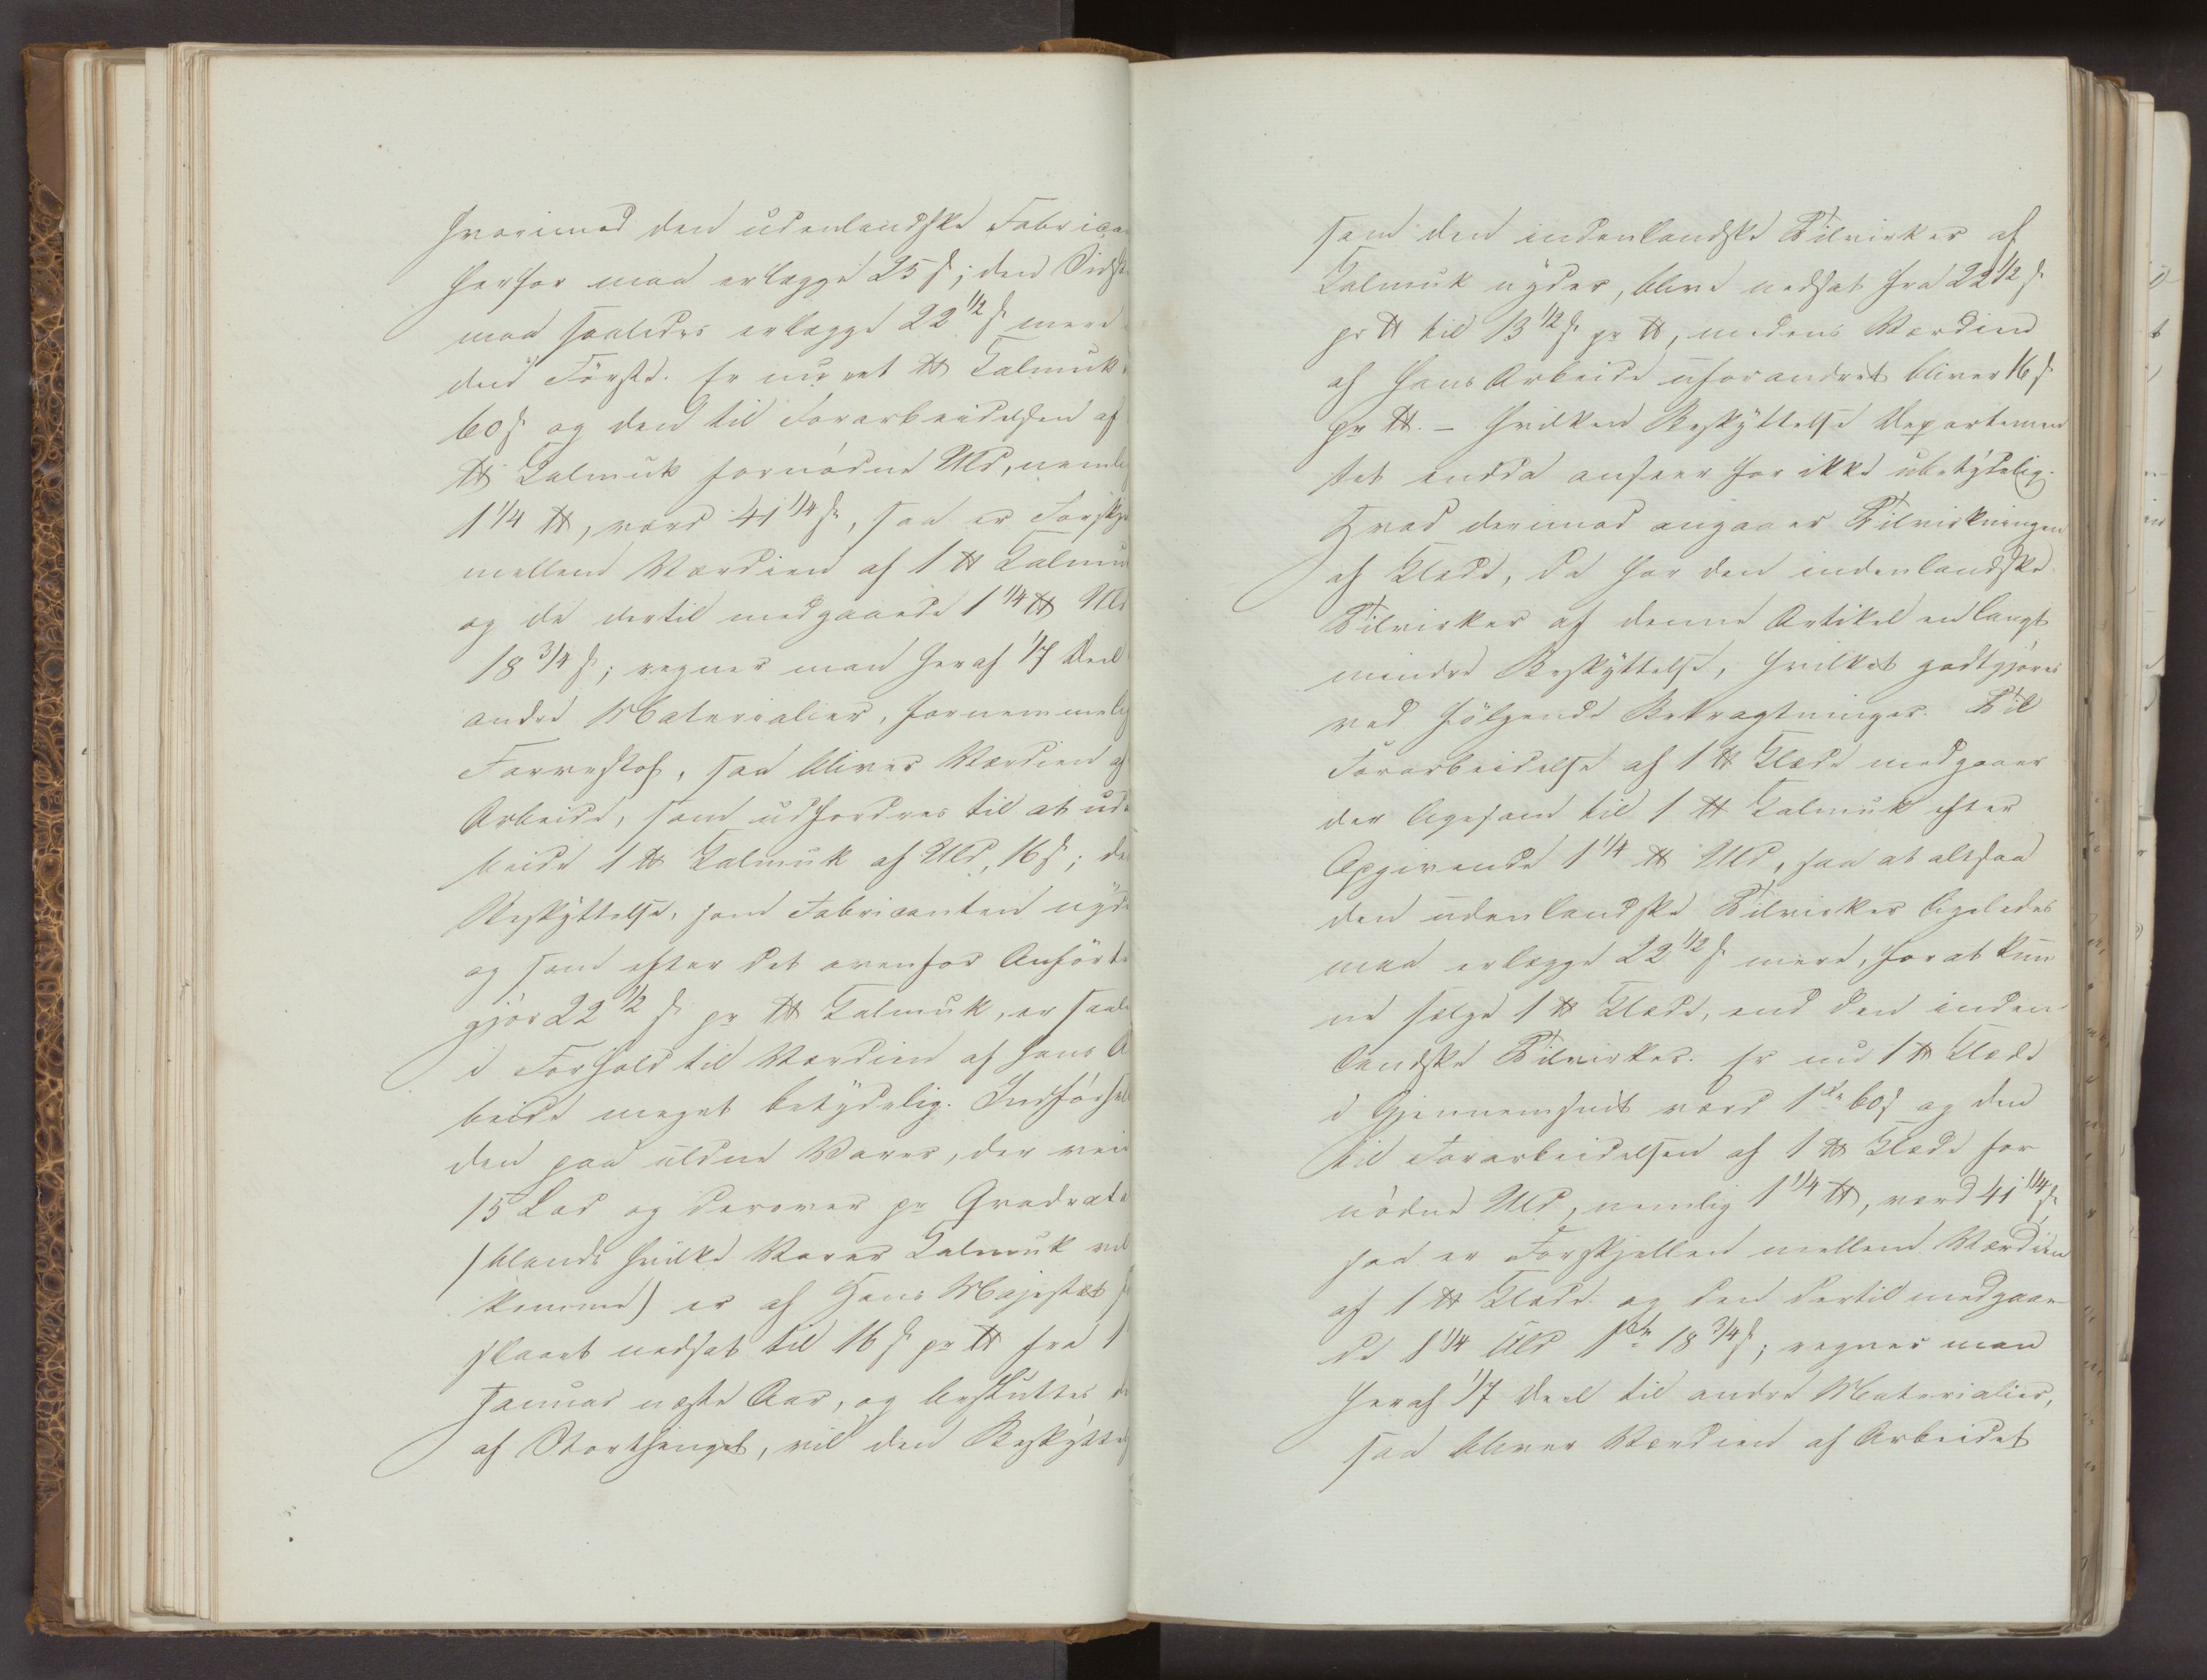 hvorimod den udenlandske Fabrica
herfor maa erlægge 25 s; den Sidst
maa saaledes erlægge 22 1/2 s mere
den Förste. Er nu et ℔ Kalmuk
60 s og den til Forarbeidelsen af
℔ Kalmuk fornødne Uld, nemli
1 1/4 ℔, værd 41 1/4 s, saa er Forskje
mellem Værdien af 1 ℔ Kalmu
og de dertil medgaaede 1 1/4 ℔ Uld
18 3/4 s; regner man heraf 1/7 Deel
andre Materialier, fornemmelig
Farvestof, saa bliver Værdien af
Arbeide, som udfordres til at ud
beide 1 ℔ Kalmuk af Uld, 16 s; de
Beskyttelse, som Fabricanten nyde
og som efter det ovenfor Anførte
gjør 22 1/2 s pr ℔ Kalmuk, er saale
i Forhold til Værdien af hans A
beide meget betydelig. Indførsel
den paa uldne Varer, der veie
15 Lod og derover pr Qvadrat
(blandt hvilke Varer Kalmuk vil
komme) er af Hans Majestæt f
slaaet nedsat til 16 s pr ℔ fra 1
Januar næste Aar, og besluttes de
af Storthinget, vil den Beskyttels
som den indenlandske Tilvirker af
Kalmuk nyder, blive nedsat fra 22 1/2 s
pr ℔ til 13 1/2 s pr ℔, medens Værdien
af hans Arbeide uforandret bliver 16 s
pr ℔. – hvilken Beskyttelse Departemen
tet endda anseer for ikke ubetydelig.
Hvad derimod angaaer Tilvirkningen
af Klæde, da har den indenlandske
Tilvirker af denne Artikel en langt
mindre Beskyttelse, hvilket godtgjøres
ved følgende Betragtninger. Til
Forarbeidelse af 1 ℔ Klæde medgaaer
der ligesom til 1 ℔ Kalmuk efter
Opgivende 1 1/4 ℔ Uld, saa at altsaa
den udenlandske Tilvirker ligeledes
maa erlægge 22 1/2 s mere, for at kun
ne sælge 1 ℔ Klæde, end den inden
landske Tilvirker. Er nu 1 ℔ Klæde
i Gjennemsnit værd 1 Spd 60 s og den
til Forarbeidelsen af 1 ℔ Klæde for
nødne Uld, nemlig 1 1/4 ℔, værd 41 1/4 s,
saa er Forskjellen mellem Værdien
af 1 ℔ Klæde og den dertil medgaae
de 1 1/4 Uld 1 Spd 18 3/4 s; regner man
heraf 1/7 Deel til andre Materialier,
saa bliver Værdien af Arbeidet